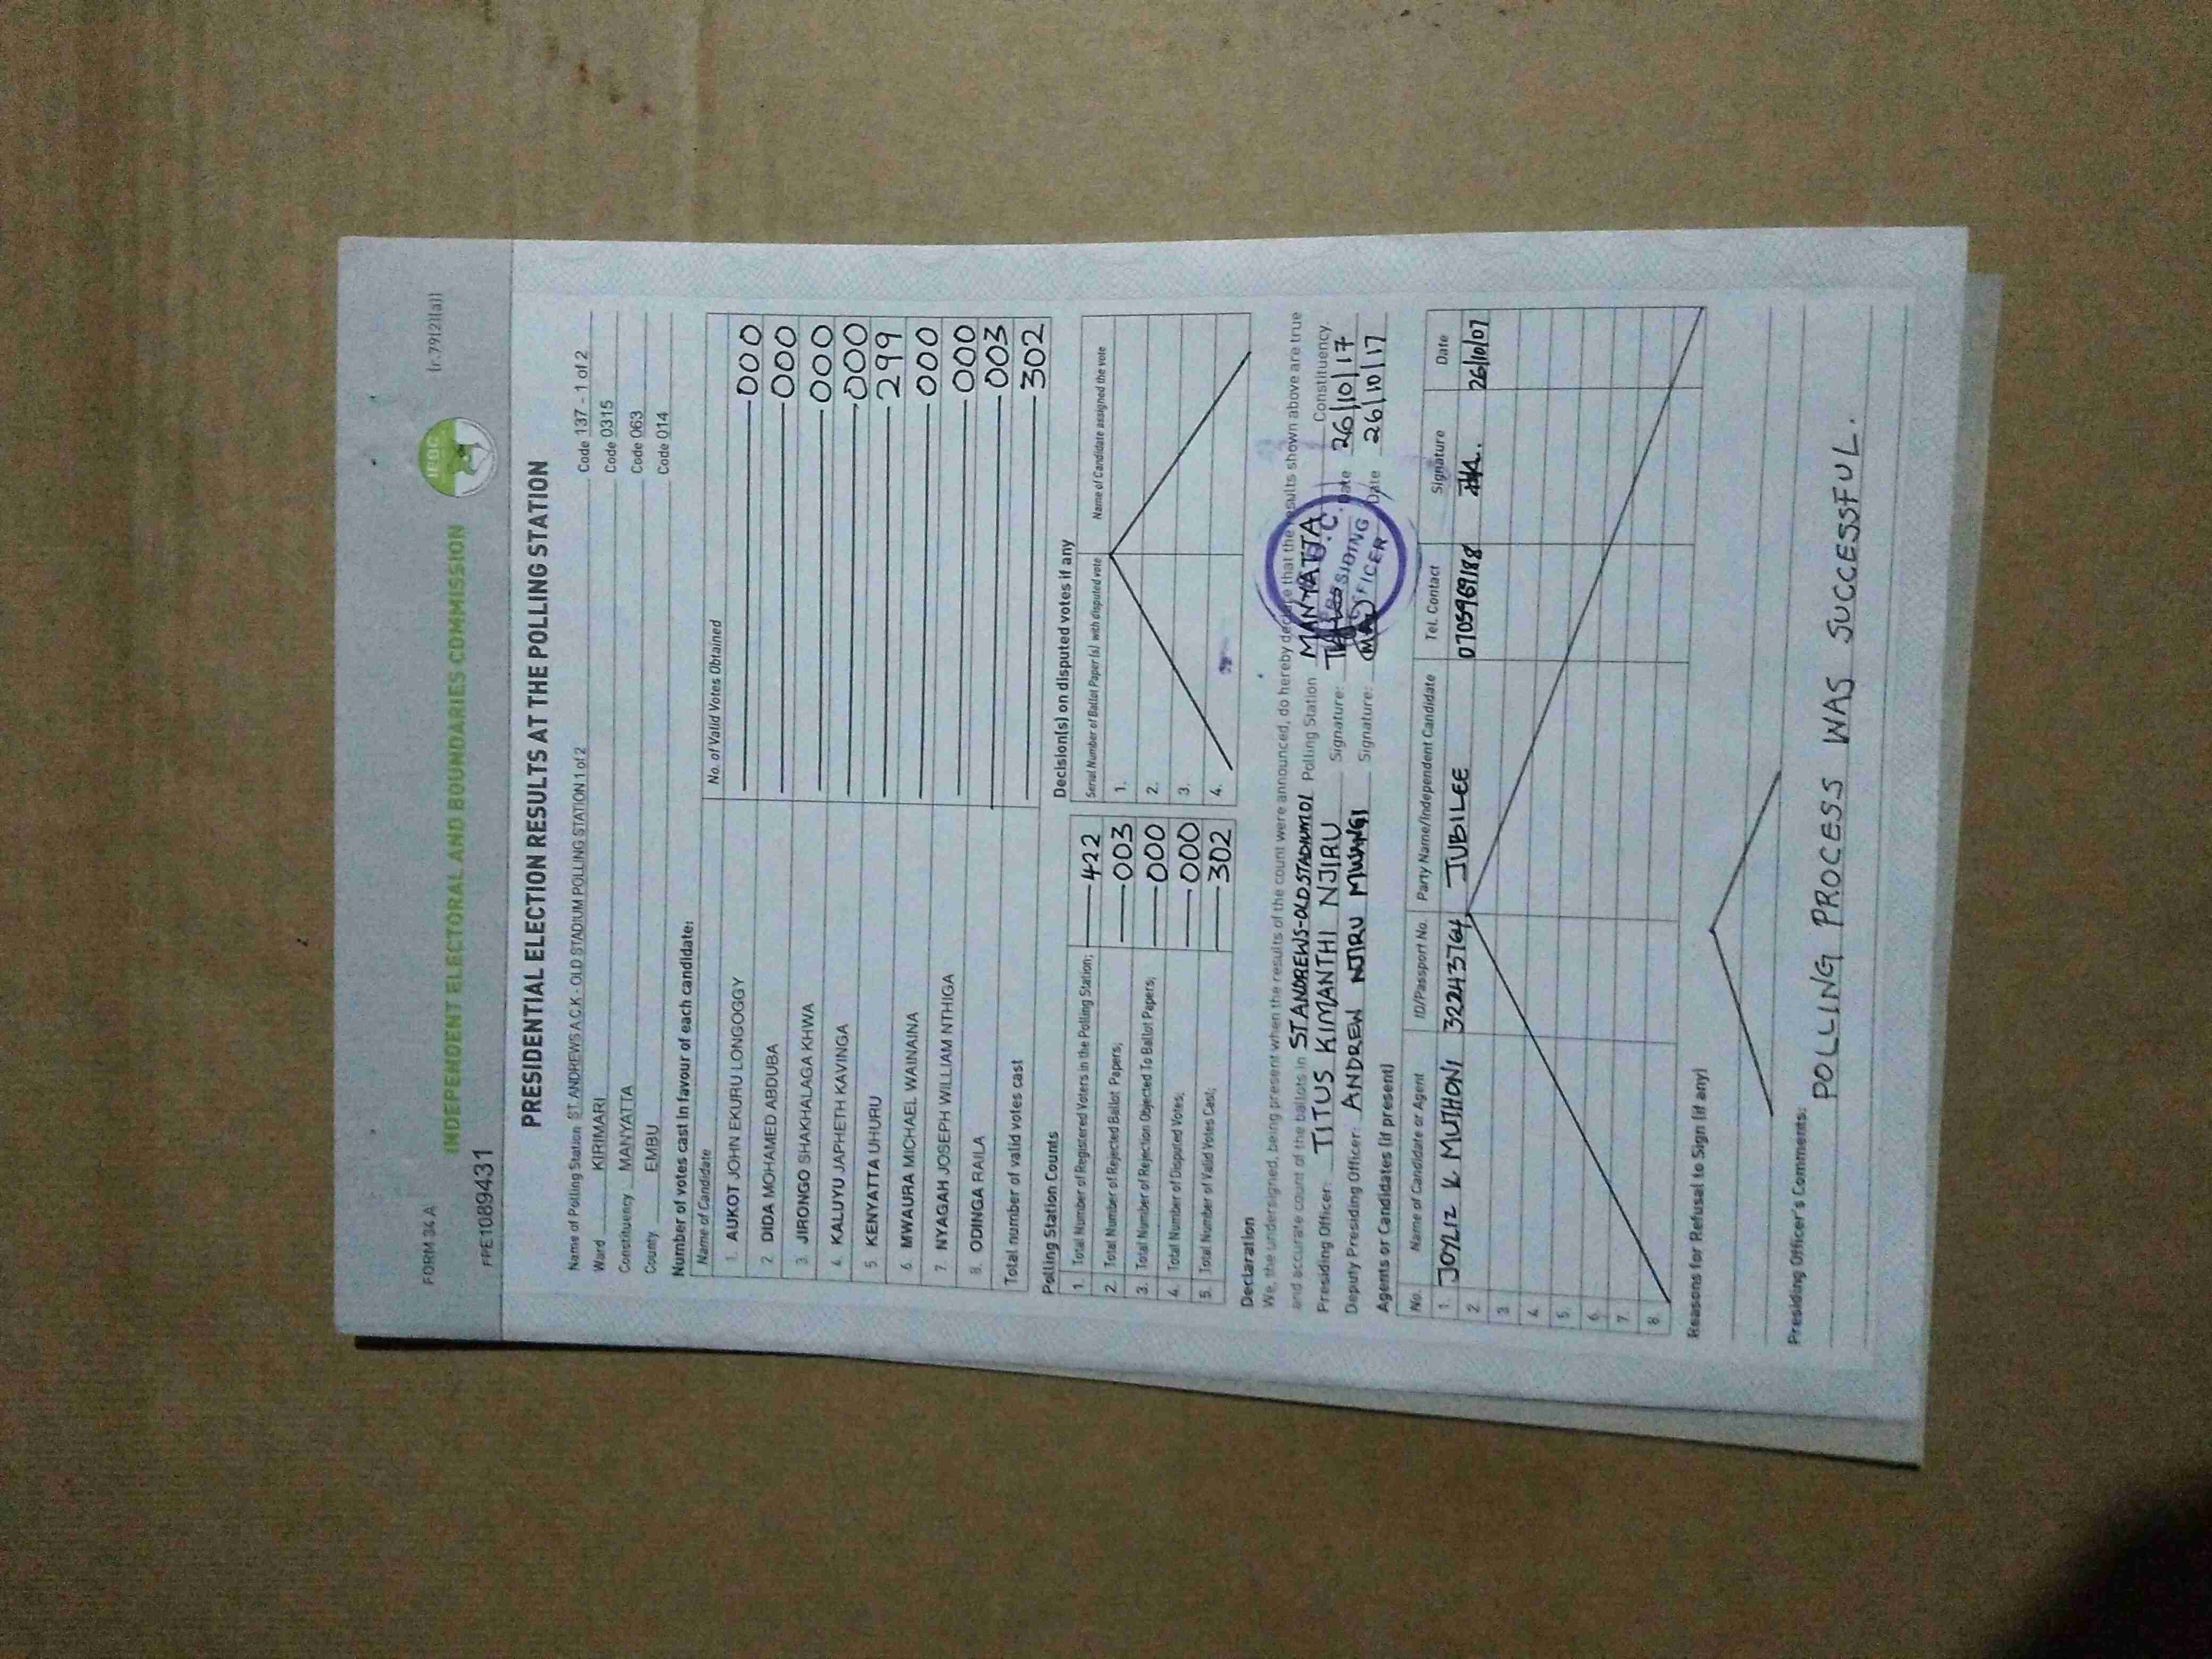 FORM 34A
(r.79(2)(a))
INDEPENDENT ELECTORAL AND BOUNDARIES COMMISSION
IEBC
FPE1089431
PRESIDENTIAL ELECTION RESULTS AT THE POLLING STATION
Name of Polling Station ST. ANDREWS A.C.K - OLD STADIUM POLLING STATION 1 of 2 Code 137 - 1 of 2
Ward KIRIMARI Code 0315
Constituency MANYATTA Code 063
County EMBU Code 014
Number of votes cast in favour of each candidate:
Name of Candidate No. of Valid Votes Obtained
1. AUKOT JOHN EKURU LONGOGGY 000
2. DIDA MOHAMED ABDUBA 000
3. JIRONGO SHAKHALAGA KHWA 000
4. KALUYU JAPHETH KAVINGA 000
5. KENYATTA UHURU 299
6. MWAURA MICHAEL WAINAINA 000
7. NYAGAH JOSEPH WILLIAM NTHIGA 000
8. ODINGA RAILA 003
Total number of valid votes cast 302
Polling Station Counts
1. Total Number of Registered Voters in the Polling Station; 422
2. Total Number of Rejected Ballot Papers; 003
3. Total Number of Rejection Objected To Ballot Papers; 000
4. Total Number of Disputed Votes; 000
5. Total Number of Valid Votes Cast; 302
Decision(s) on disputed votes if any
Serial Number of Ballot Paper(s) with disputed vote Name of Candidate assigned the vote
1.
2.
3.
4.
Declaration
We, the undersigned, being present when the results of the count were announced, do hereby declare that the results shown above are true
and accurate count of the ballots in ST ANDREWS-OLD STADIUM 01 Polling Station MANYATTA Constituency.
Presiding Officer: TITUS KIMANTHI NJIRU Signature: Date 26/10/17
Deputy Presiding Officer: ANDREW NJIRU MWANGI Signature: Date 26/10/17
PRESIDING
OFFICER
Agents or Candidates (if present)
No. Name of Candidate or Agent ID/Passport No. Party Name/Independent Candidate Tel. Contact Signature Date
1. JOYLIZ K MUTHONI 32243764 JUBILEE 0705969188 26/10/07
2.
3.
4.
5.
6.
7.
8.
Reasons for Refusal to Sign (if any)
Presiding Officer's Comments:
POLLING PROCESS WAS SUCCESSFUL.